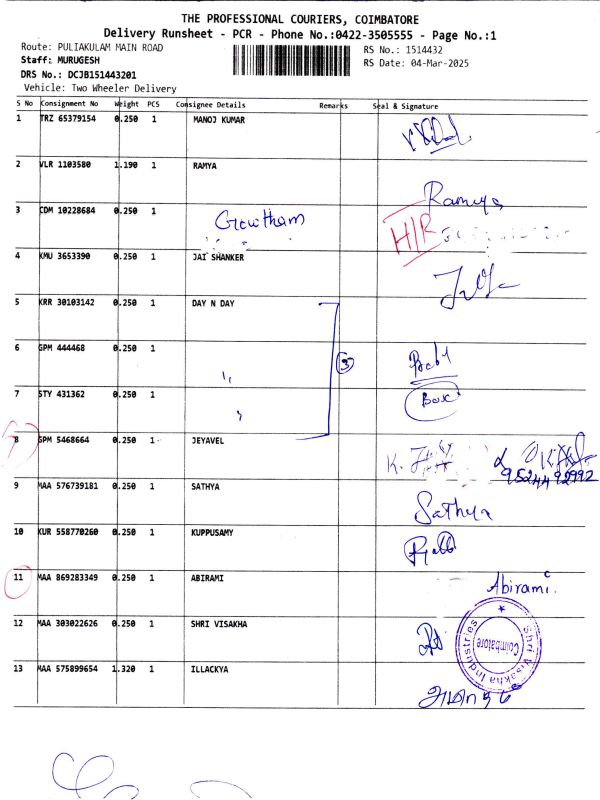 THE PROFESSIONAL COURIERS, COIMBATORE
Delivery Runsheet - PCR - Phone No.:0422-3505555 - Page No.:1
Route: PULIAKULAM MAIN ROAD
RS No.: 1514432
Staff: MURUGESH
RS Date: 04-Mar-2025
DRS No.: DCJB151443201
Vehicle: Two Wheeler Delivery
S No Consignment No Weight PCS Consignee Details Remarks Seal & Signature
1 TRZ 65379154 0.250 1 MANOJ KUMAR
2 VLR 1103580 1.190 1 RAMYA
Ramya
3 CDM 10228684 0.250 1 Gowtham
H/R
4 KMU 3653390 0.250 1 JAI SHANKER
5 KRR 30103142 0.250 1 DAY N DAY
6 GPM 444468 0.250 1
3
7 STY 431362 0.250 1
Box
8 GPM 5468664 0.250 1 JEYAVEL
95244 92992
9 MAA 576739181 0.250 1 SATHYA
Sathya
10 KUR 558770260 0.250 1 KUPPUSAMY
11 MAA 869283349 0.250 1 ABIRAMI
Abirami
12 MAA 303022626 0.250 1 SHRI VISAKHA
Shri Visakha Industries
Coimbatore
13 MAA 575899654 1.320 1 ILLACKYA